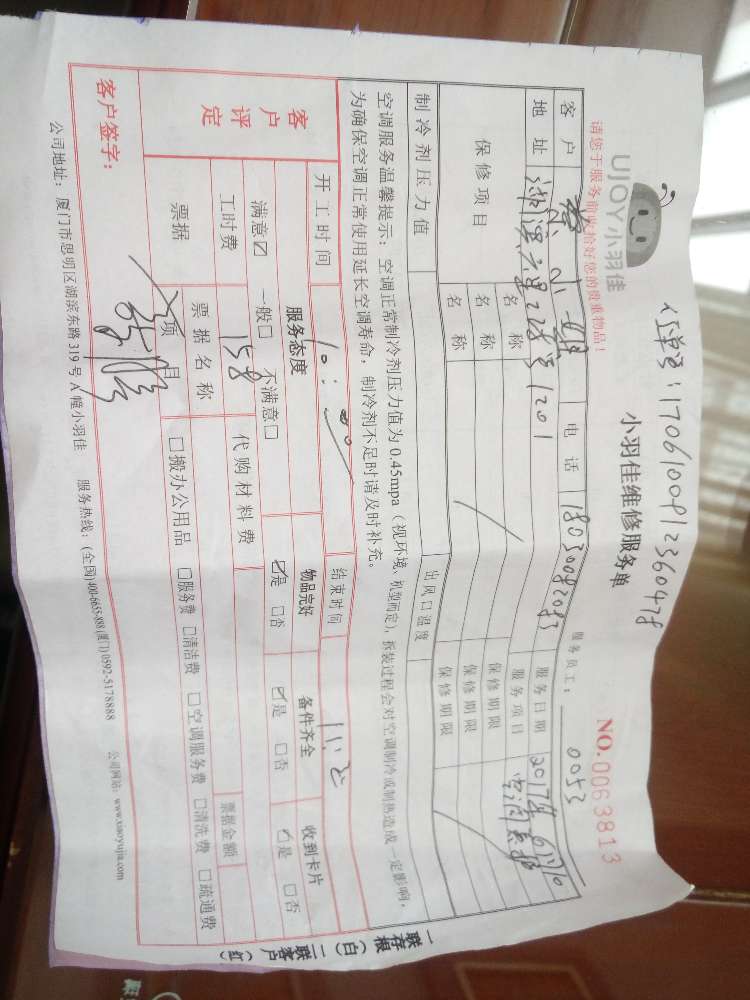 UJOY小羽佳
任单号:1706100912360478
小羽佳维修服务单
NO.0063813
请您于服务前收拾好您的贵重物品!
服务员工: 0053
客户 小姐 电话 18030082083 服务日期 2017年6月10
地址 湖滨六里22号1201 服务项目 空调移机
保修项目 名称 保修期限
名称 保修期限
名称 保修期限
制冷剂压力值 出风口温度
空调服务温馨提示:空调正常制冷剂压力值为0.45mpa(视环境、机型而定),拆装过程会对空调制冷或制热造成一定影响,
为确保空调正常使用延长空调寿命,制冷剂不足时请及时补充。
开工时间 10:00 结束时间 11:20
客户评定
服务态度 物品完好 备件齐全 收到卡片
满意☑ 一般□ 不满意□ ☑是 □否 ☑是 □否 ☑是 □否
工时费 158 代购材料费
票据 票据名称 票据金额
项目 □搬办公用品 □服务费 □清洁费 □空调服务费 □清洗费 □疏通费
客户签字:
公司地址:厦门市思明区湖滨东路319号A幢小羽佳 服务热线:(全国)400-6655-888(厦门)0592-5178888 公司网站:www.xiaoyujia.com
一联存根(白)二联客户(红)